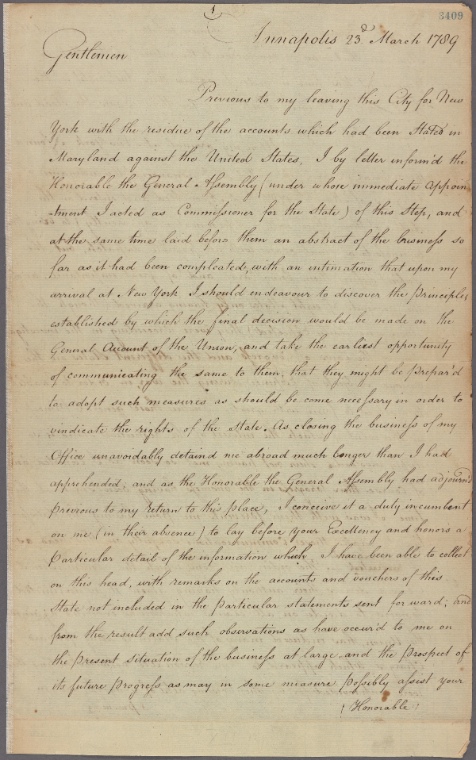 1
3409
Annapolis 23d March 1789
Gentlemen
Previous to my leaving this City for New
York with the residue of the accounts which had been Stated in
Maryland against the United States, I by letter inform'd the
Honorable the General Assembly (under whose immediate appoin
-tment I acted as Commissioner for the State) of this Step, and
at the same time laid before them an abstract of the business so
far as it had been compleated, with an intimation that upon my
arrival at New York I should endeavour to discover the Principles
established by which the final decision would be made on the
General Account of the Union, and take the earliest opportunity
of communicating the same to them, that they might be prepar'd
to adopt such measures as should be come necessary in order to
vindicate the rights of the State. As closing the business of my
Office unavoidably detain'd me abroad much longer than I had
apprehended, and as the Honorable the General Assembly had adjourn'd
previous to my return to this place, I conceive it a duty incumbent
on me (in their absence) to lay before your Excellency and honors a
particular detail of the information which I have been able to collect
on this head, with remarks on the accounts and vouchers of this
State not included in the particular statements sent forward; and
from the result add such observations as have occur'd to me on
the present situation of the business at large and the prospect of
its future progress as may in some measure possibly assist your
Honorable